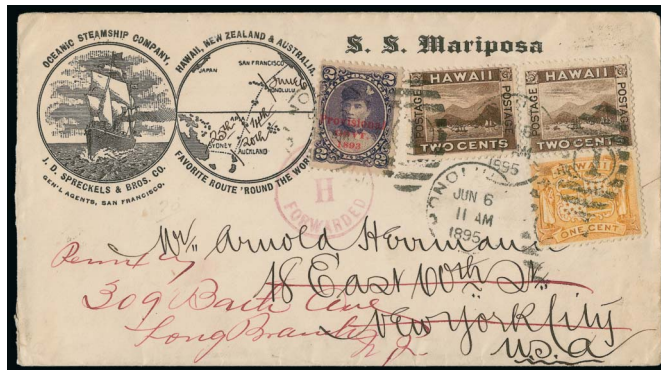 OCEANIC STEAMSHIP COMPANY.
J. D. SPRECKELS & BROS. CO.
GEN'L AGENTS, SAN FRANCISCO.
HAWAII, NEW ZEALAND & AUSTRALIA.
JAPAN
SAN FRANCISCO
HONOLULU
APIA
SYDNEY
AUCKLAND
FAVORITE ROUTE 'ROUND THE WOR
S. S. Mariposa
Provisional
GOVT.
1893
HAWAII
POSTAGE
POSTAGE
TWO CENTS
HAWAII
POSTAGE
POSTAGE
TWO CENTS
ONE CENT
1895
HONOLULU
JUN 6
11 AM
1895
H
FORWARDED
Mr. Arnold Herrmann
18 East 60th St.
New York City
U.S.A
309 Bath Ave
Long Branch
N.J.